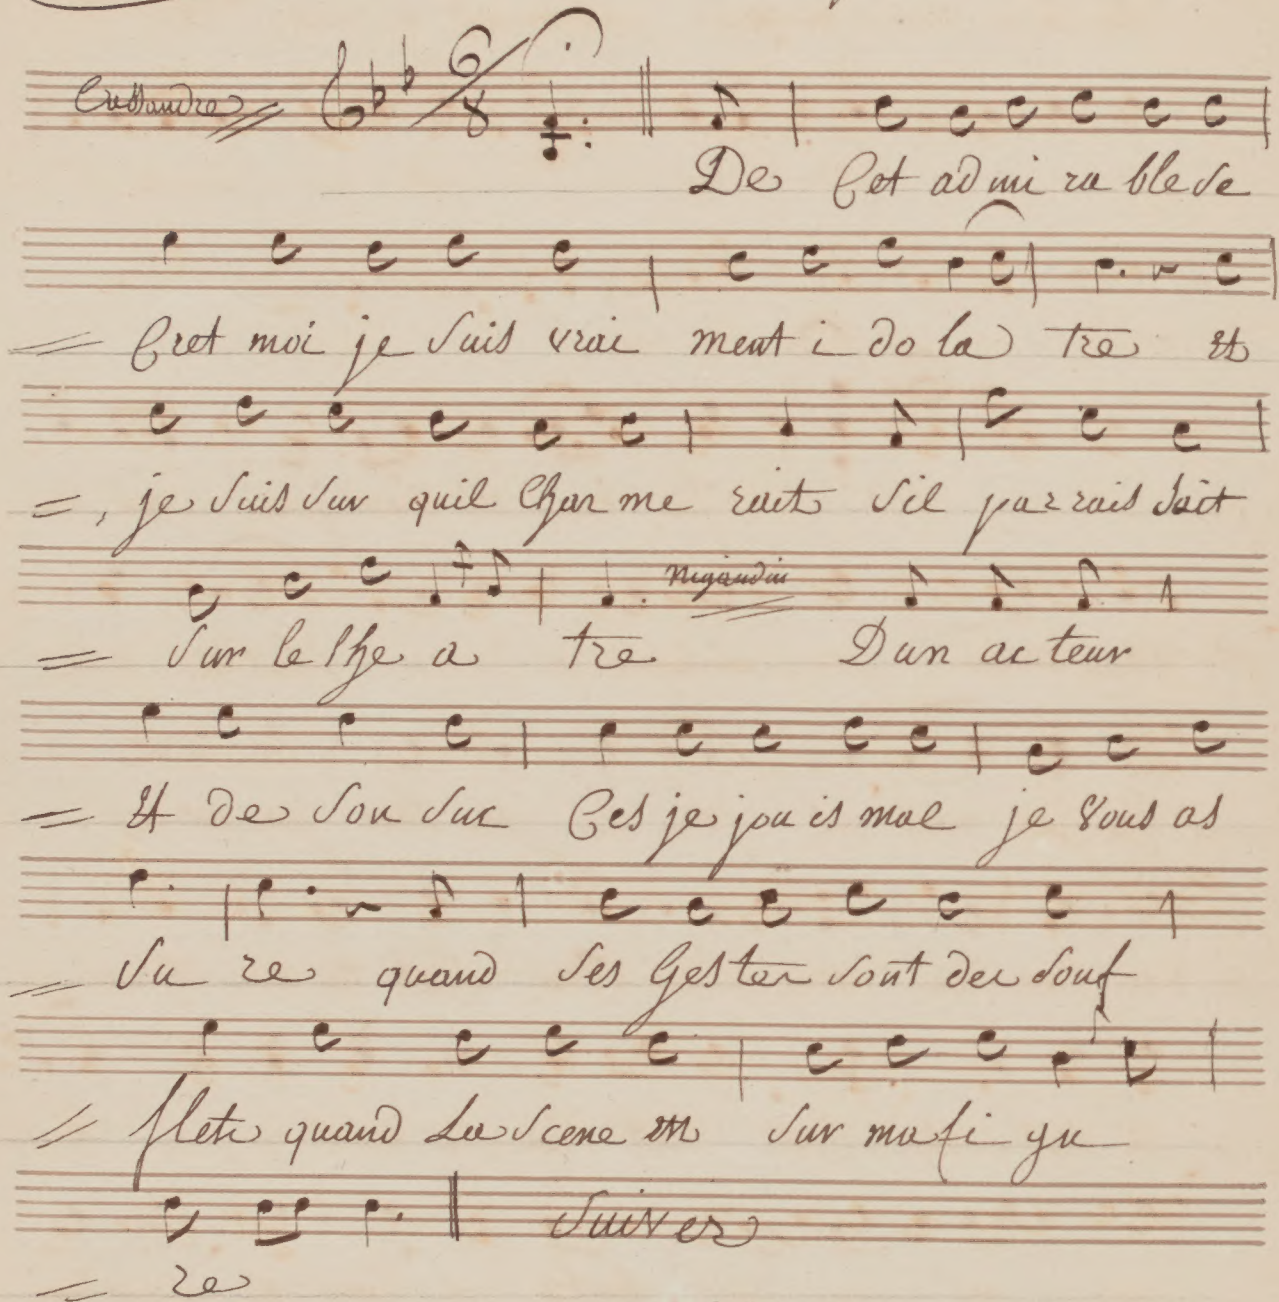 Cassandre 6/8
De Cet ad mi ra ble se
= Cret moi je suis vrai ment i do la tre et
=, je suis sur quil Char me rait sil par rais sait
= sur le the a tre Nigaudin Dun ac teur
= et de son suc Ces je jou is mal je vous as
= su re quand ses Ges tes sont des souf
= flets quand La scene est sur ma fi gu
= re suivez